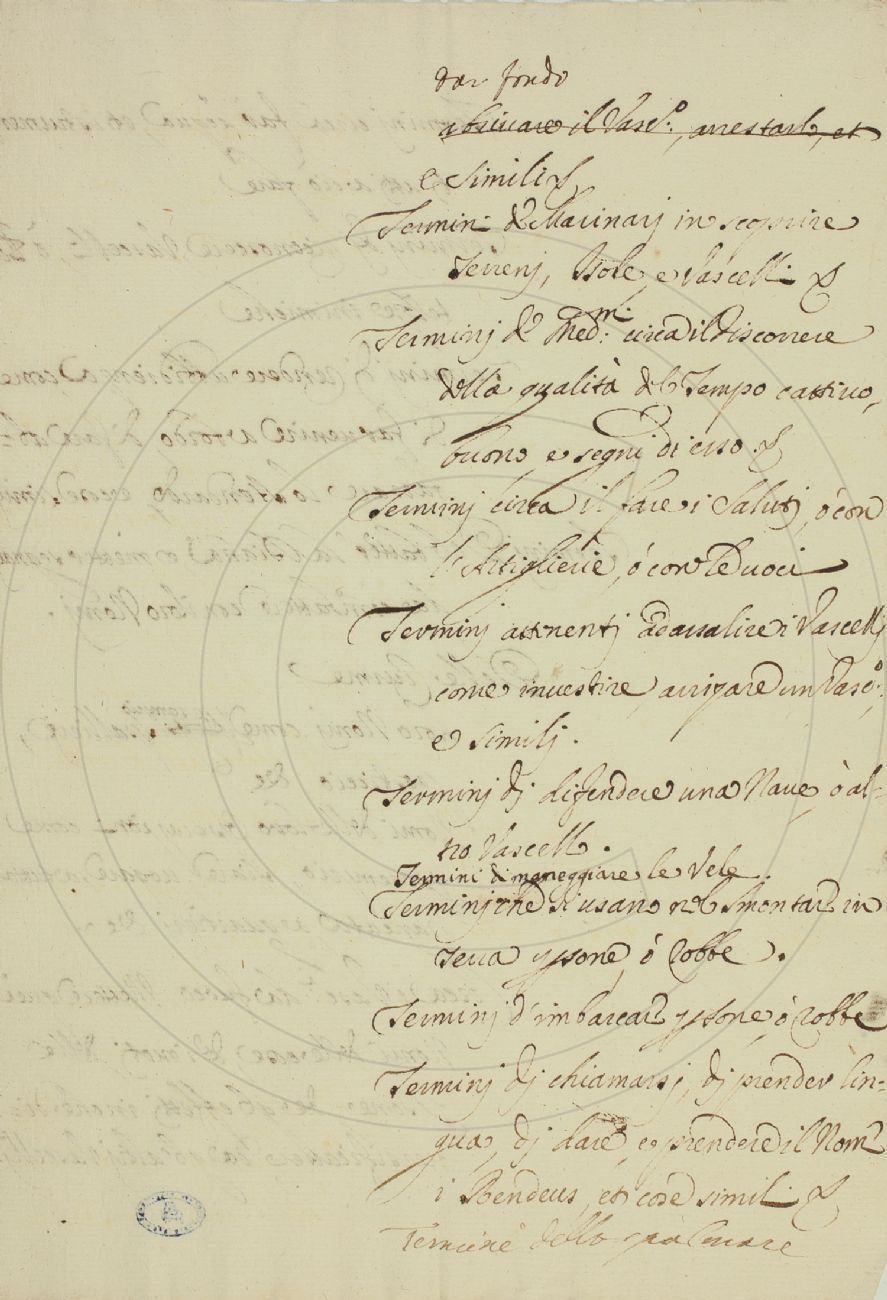 dar fondo
abbriuare il Vasc.º, arrestarlo, et
e simili
Termin: de Marinarj in scoprire
Terrenj, Isole, e Vascelli
Terminj de Med.mi circa il discorrere
della qualità del Tempo cattiuo,
buono e segni di esso.
Terminj circa il fare i Salutj, ò con
l'Artiglierie, ò con le uoci
Terminj attinentj ad assalire i Vascellj
come inuestire, arripare un Vasc.º,
e similj.
Terminj dj difendere una Naue, ò al-
tro Vascello.
Termini di maneggiare le Vele
Terminj che si usano nel smontare in
Terra persone, ò robbe.
Terminj d'imbarcare persone, ò robbe
Terminj dj chiamarsj, dj prender lin-
gua, dj dare, e prendere il Nome
i Rendeus, et cose simili
Termine dello spalmare